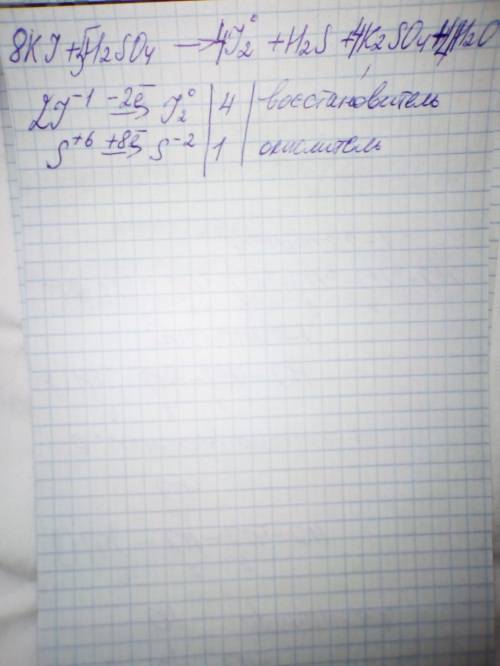 8KJ + 5H₂SO₄ → 4J₂⁰ + H₂S + 4K₂SO₄ + 4H₂O
2J⁻¹ –2ē→ J₂⁰ | 4 | восстановитель
S⁺⁶ +8ē→ S⁻² | 1 | окислитель